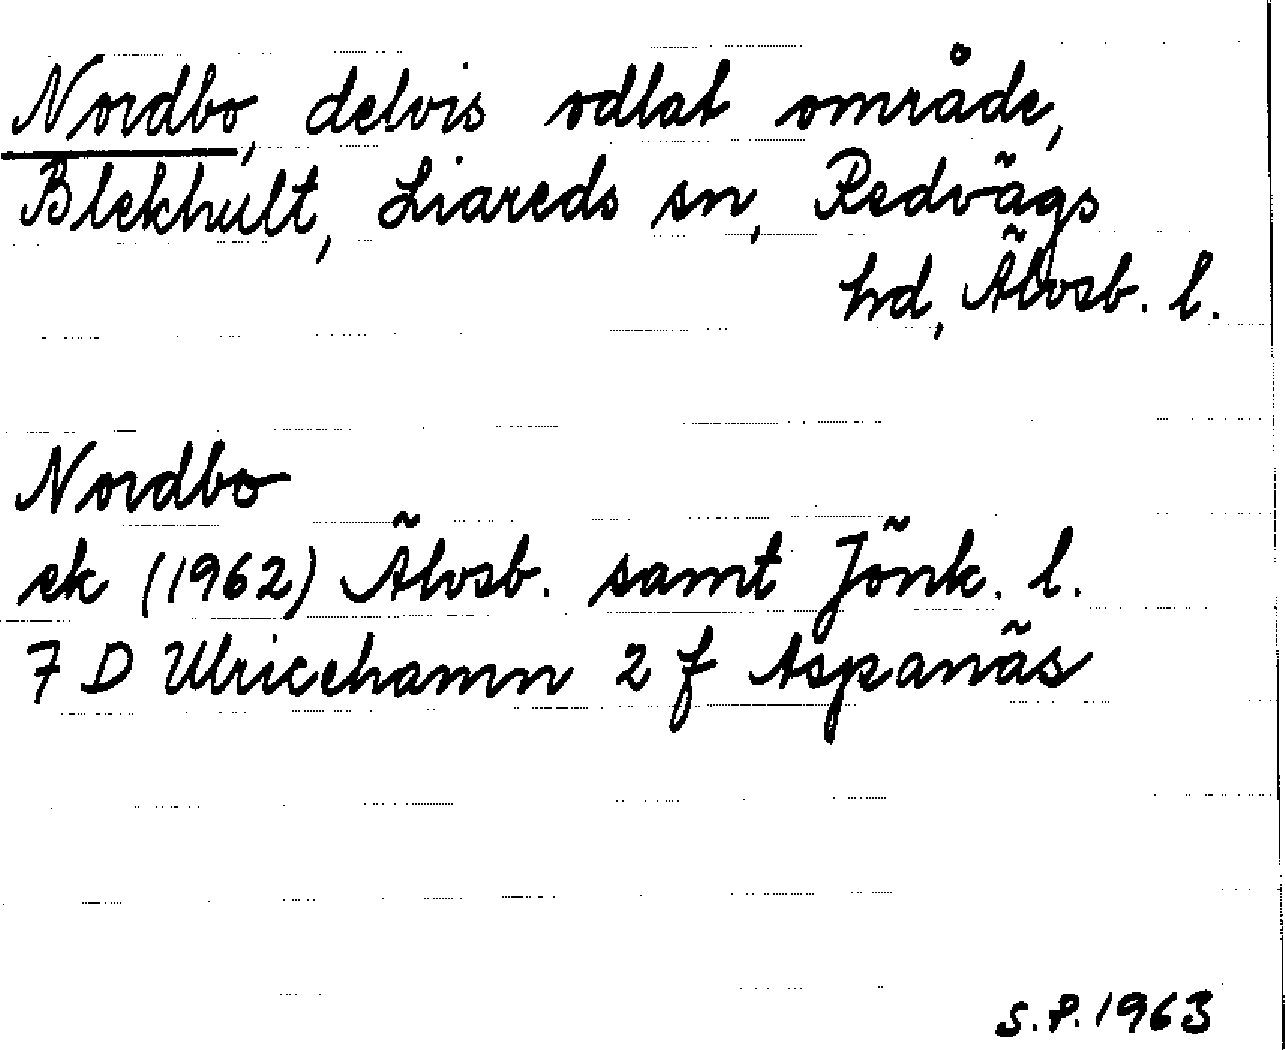 Nordbo, delvis odlat område,
Blekhult, Liareds sn, Redvägs
hd, Älvsb. l.
Nordbo
ek (1962) Älvsb. samt Jönk. l.
7 D Ulricehamn 2 f Aspanäs
S.P. 1963